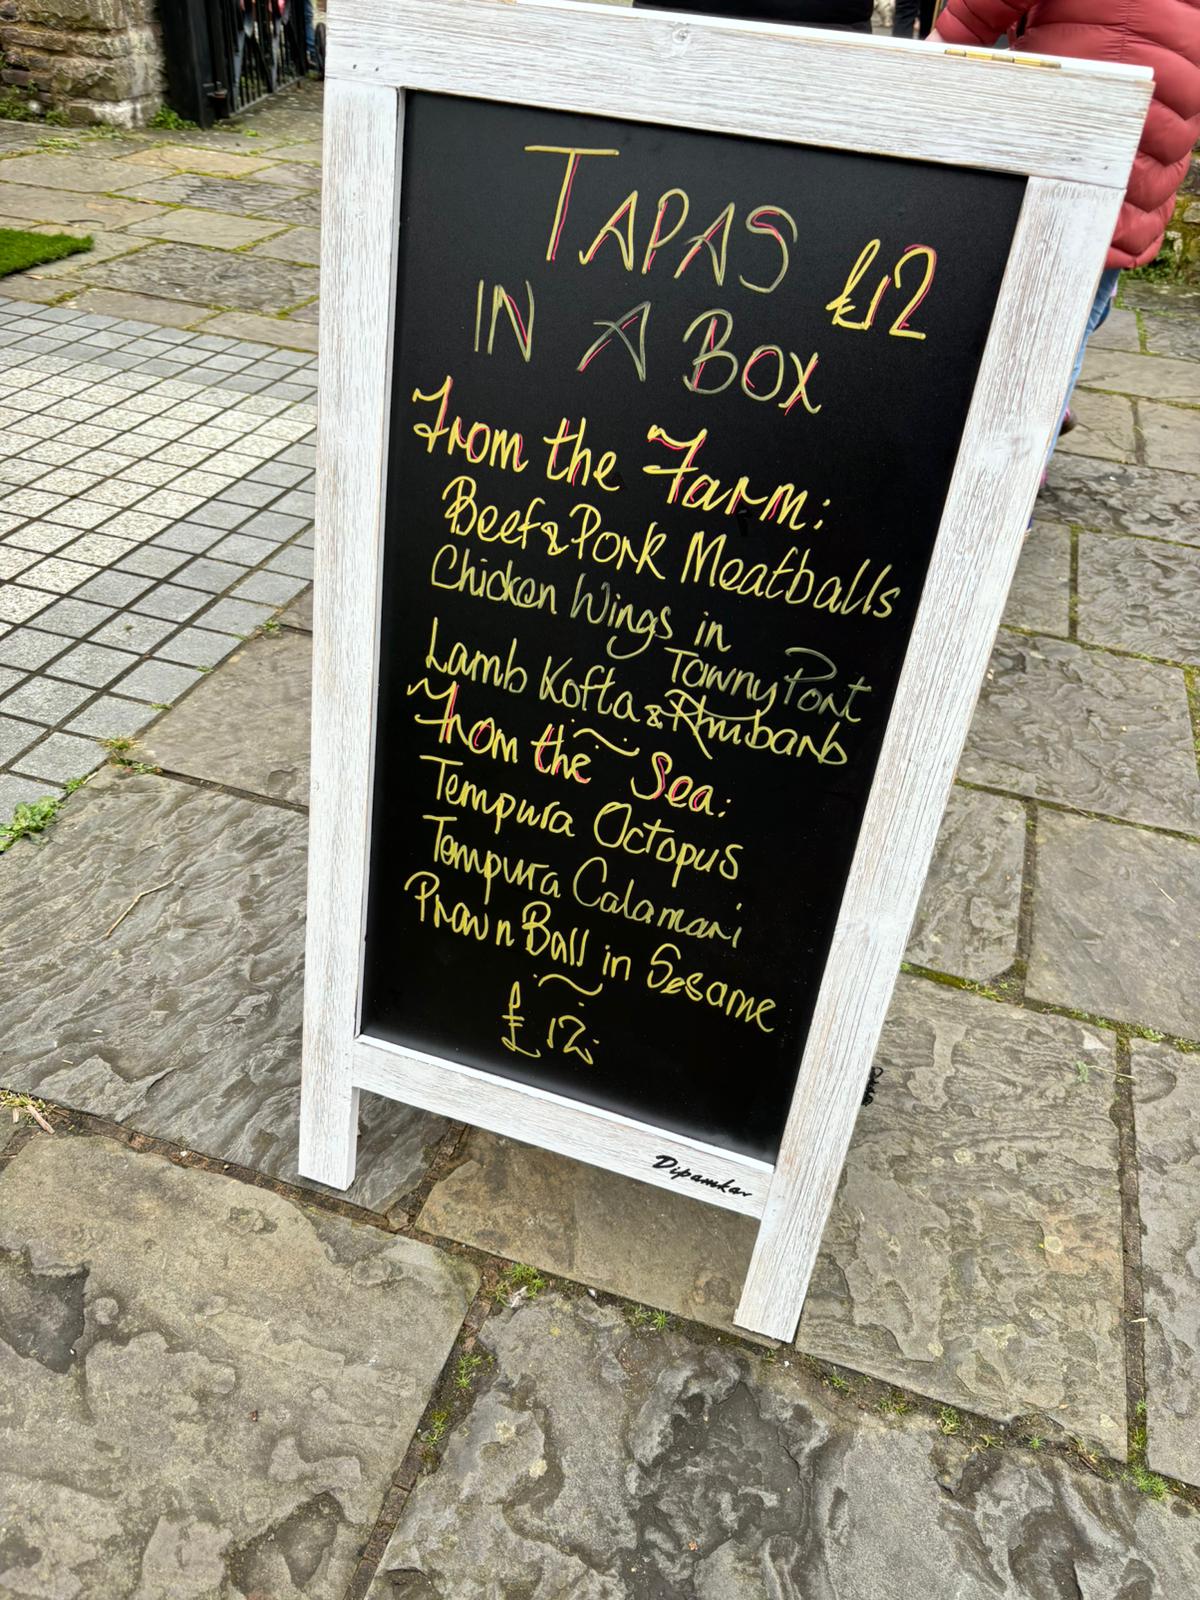 TAPAS £12
IN A BOX
From the Farm:
Beef & Pork Meatballs
Chicken Wings in
Tawny Port
Lamb Kofta & Rhubarb
~
From the Sea:
Tempura Octopus
Tempura Calamari
Prawn Ball in Sesame
~
£12.
Dipamkar